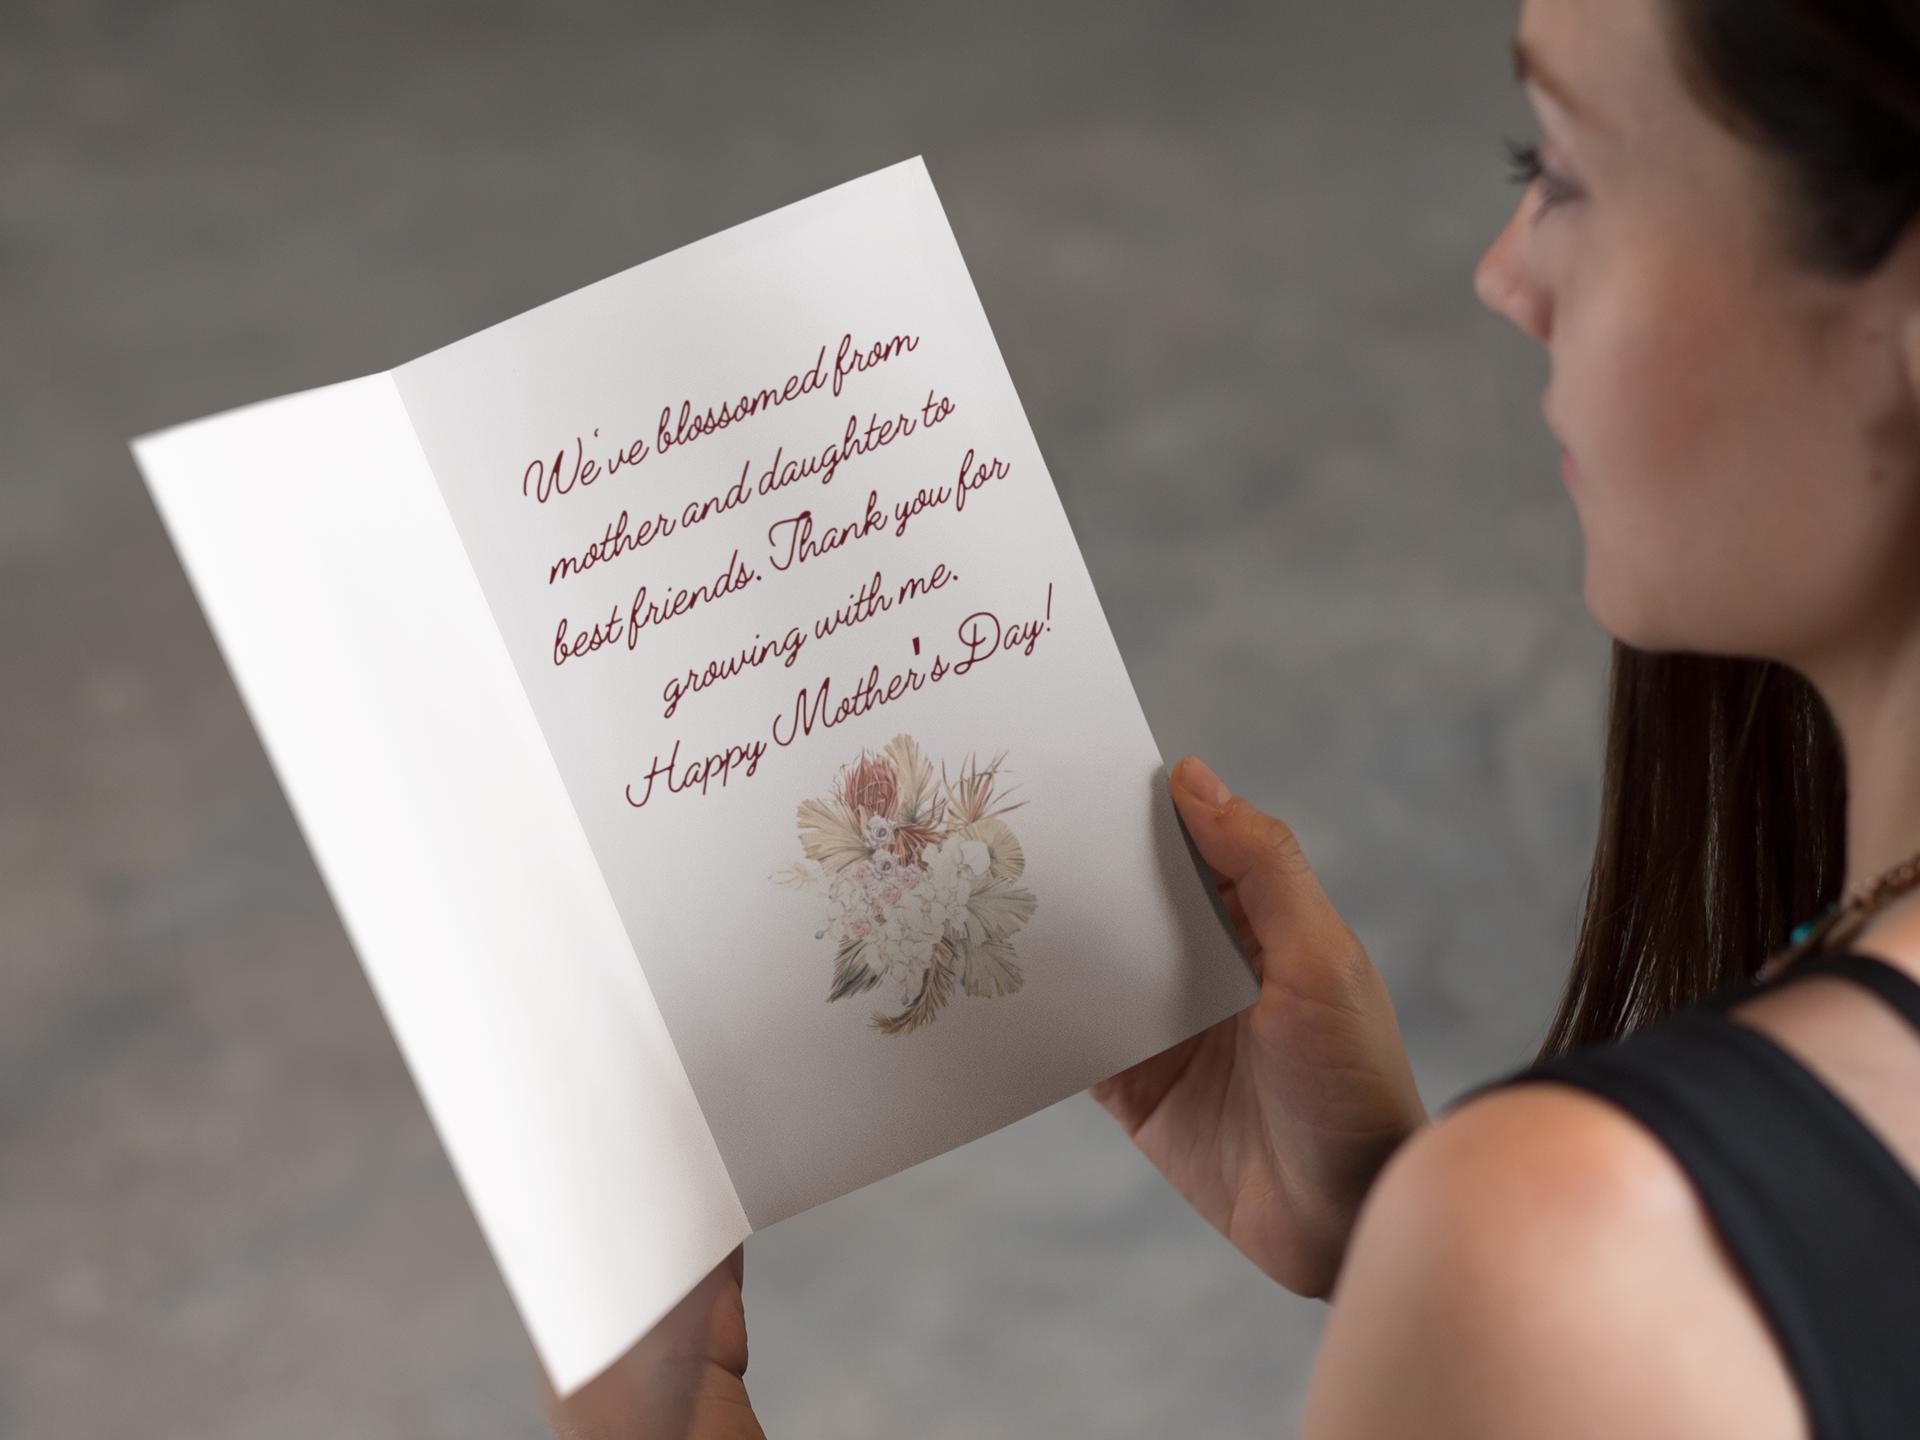 We've blossomed from
mother and daughter to
best friends. Thank you for
growing with me.
Happy Mother's Day!